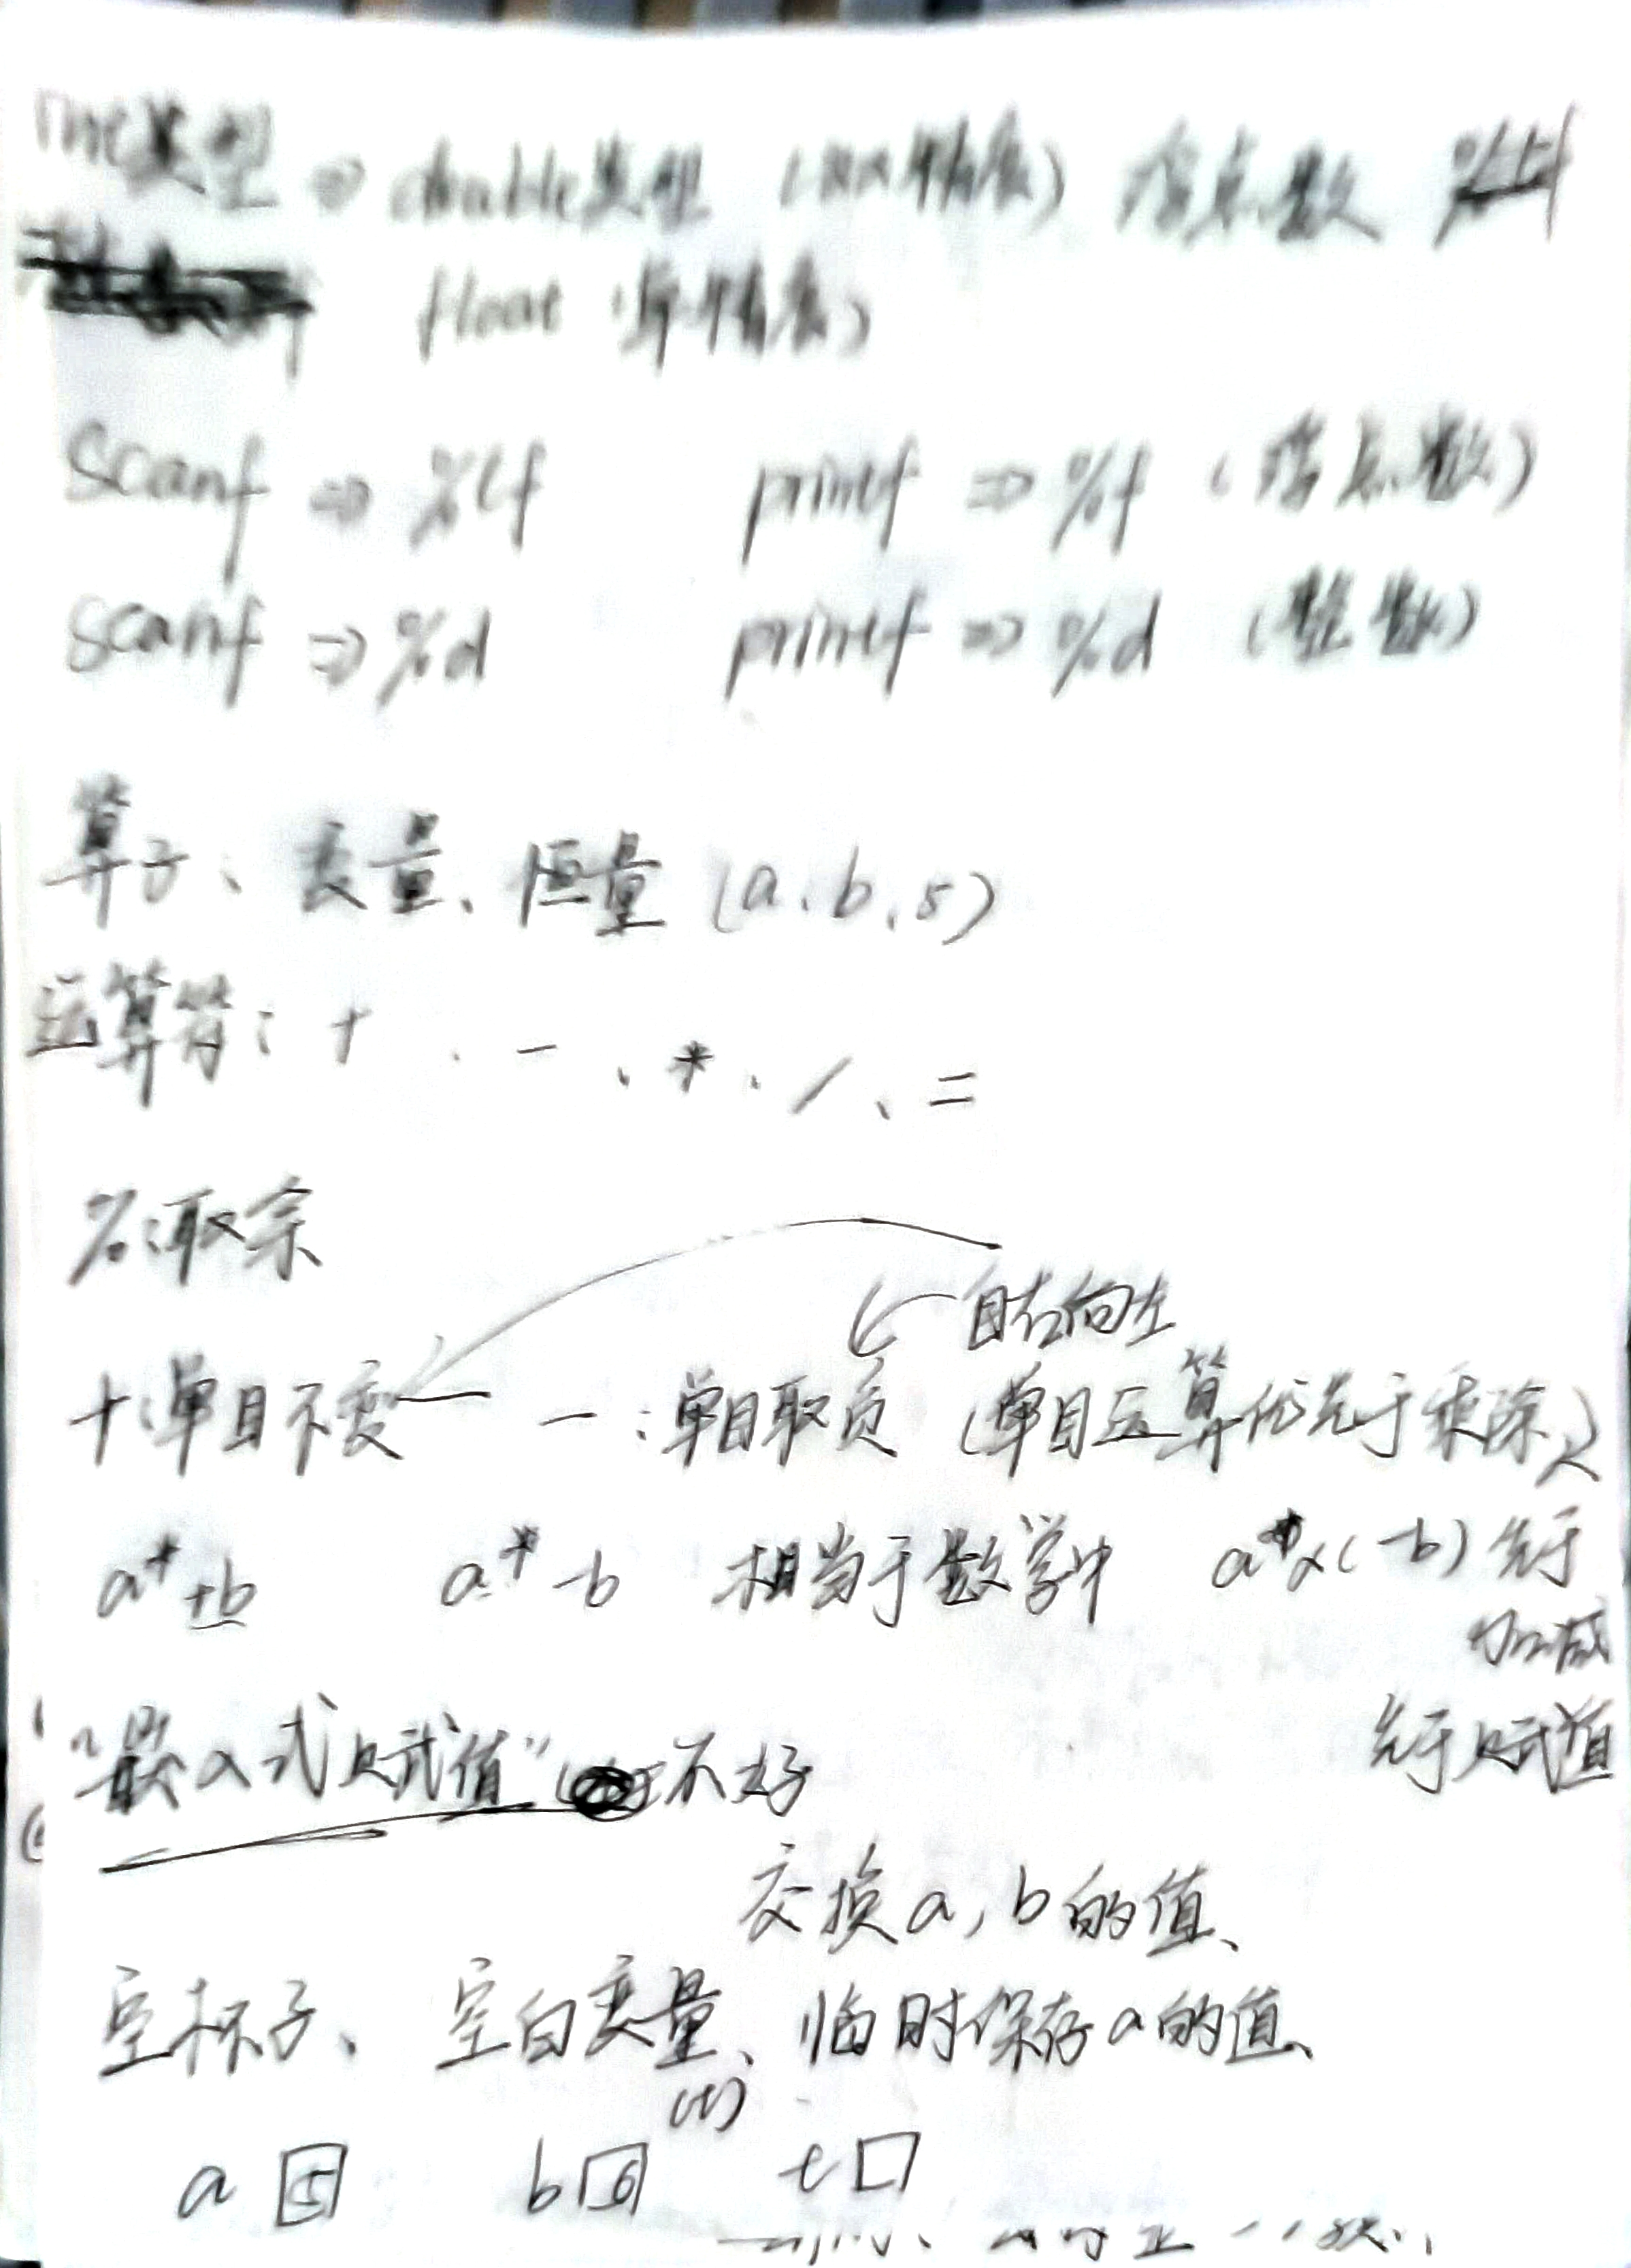 int类型 ⇒ double类型 (双精度) 浮点数
float (单精度)
scanf ⇒ %lf printf ⇒ %f (浮点数)
scanf ⇒ %d printf ⇒ %d (整数)
算子、变量、恒量 (a、b、5)
运算符: + 、 - 、 * 、 / 、 =
%:取余
自右向左
+:单目不变 - :单目取负 (单目运算优先于乘除)
a*+b a*-b 相当于数学中 a×(-b) 先于
加减
先于赋值
"嵌入式赋值" 不好
交换a,b的值、
空杯子、 空白变量、 临时保存a的值、
(t)
a 5 b 6 t